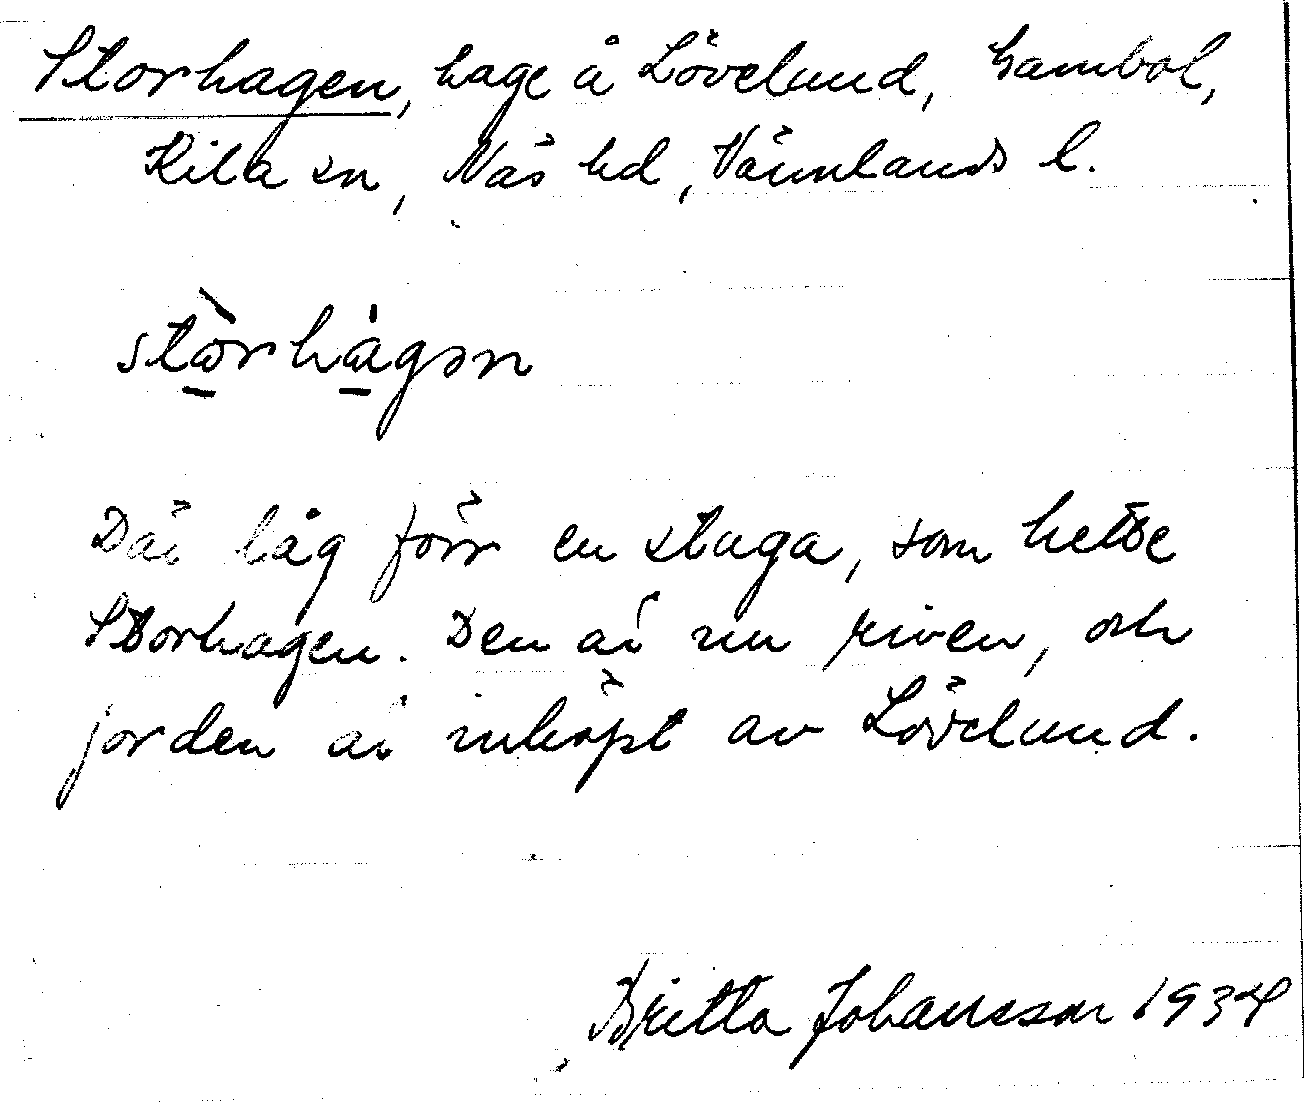 Storhagen, hage å Lövelund, Hambol,
Kila sn, Näs hd, Värmlands l.
stòrhágən
Där låg förr en stuga, som hette
Storhagen. Den är nu riven, och
jorden är inköpt av Lövelund.
Britta Johansson 1934